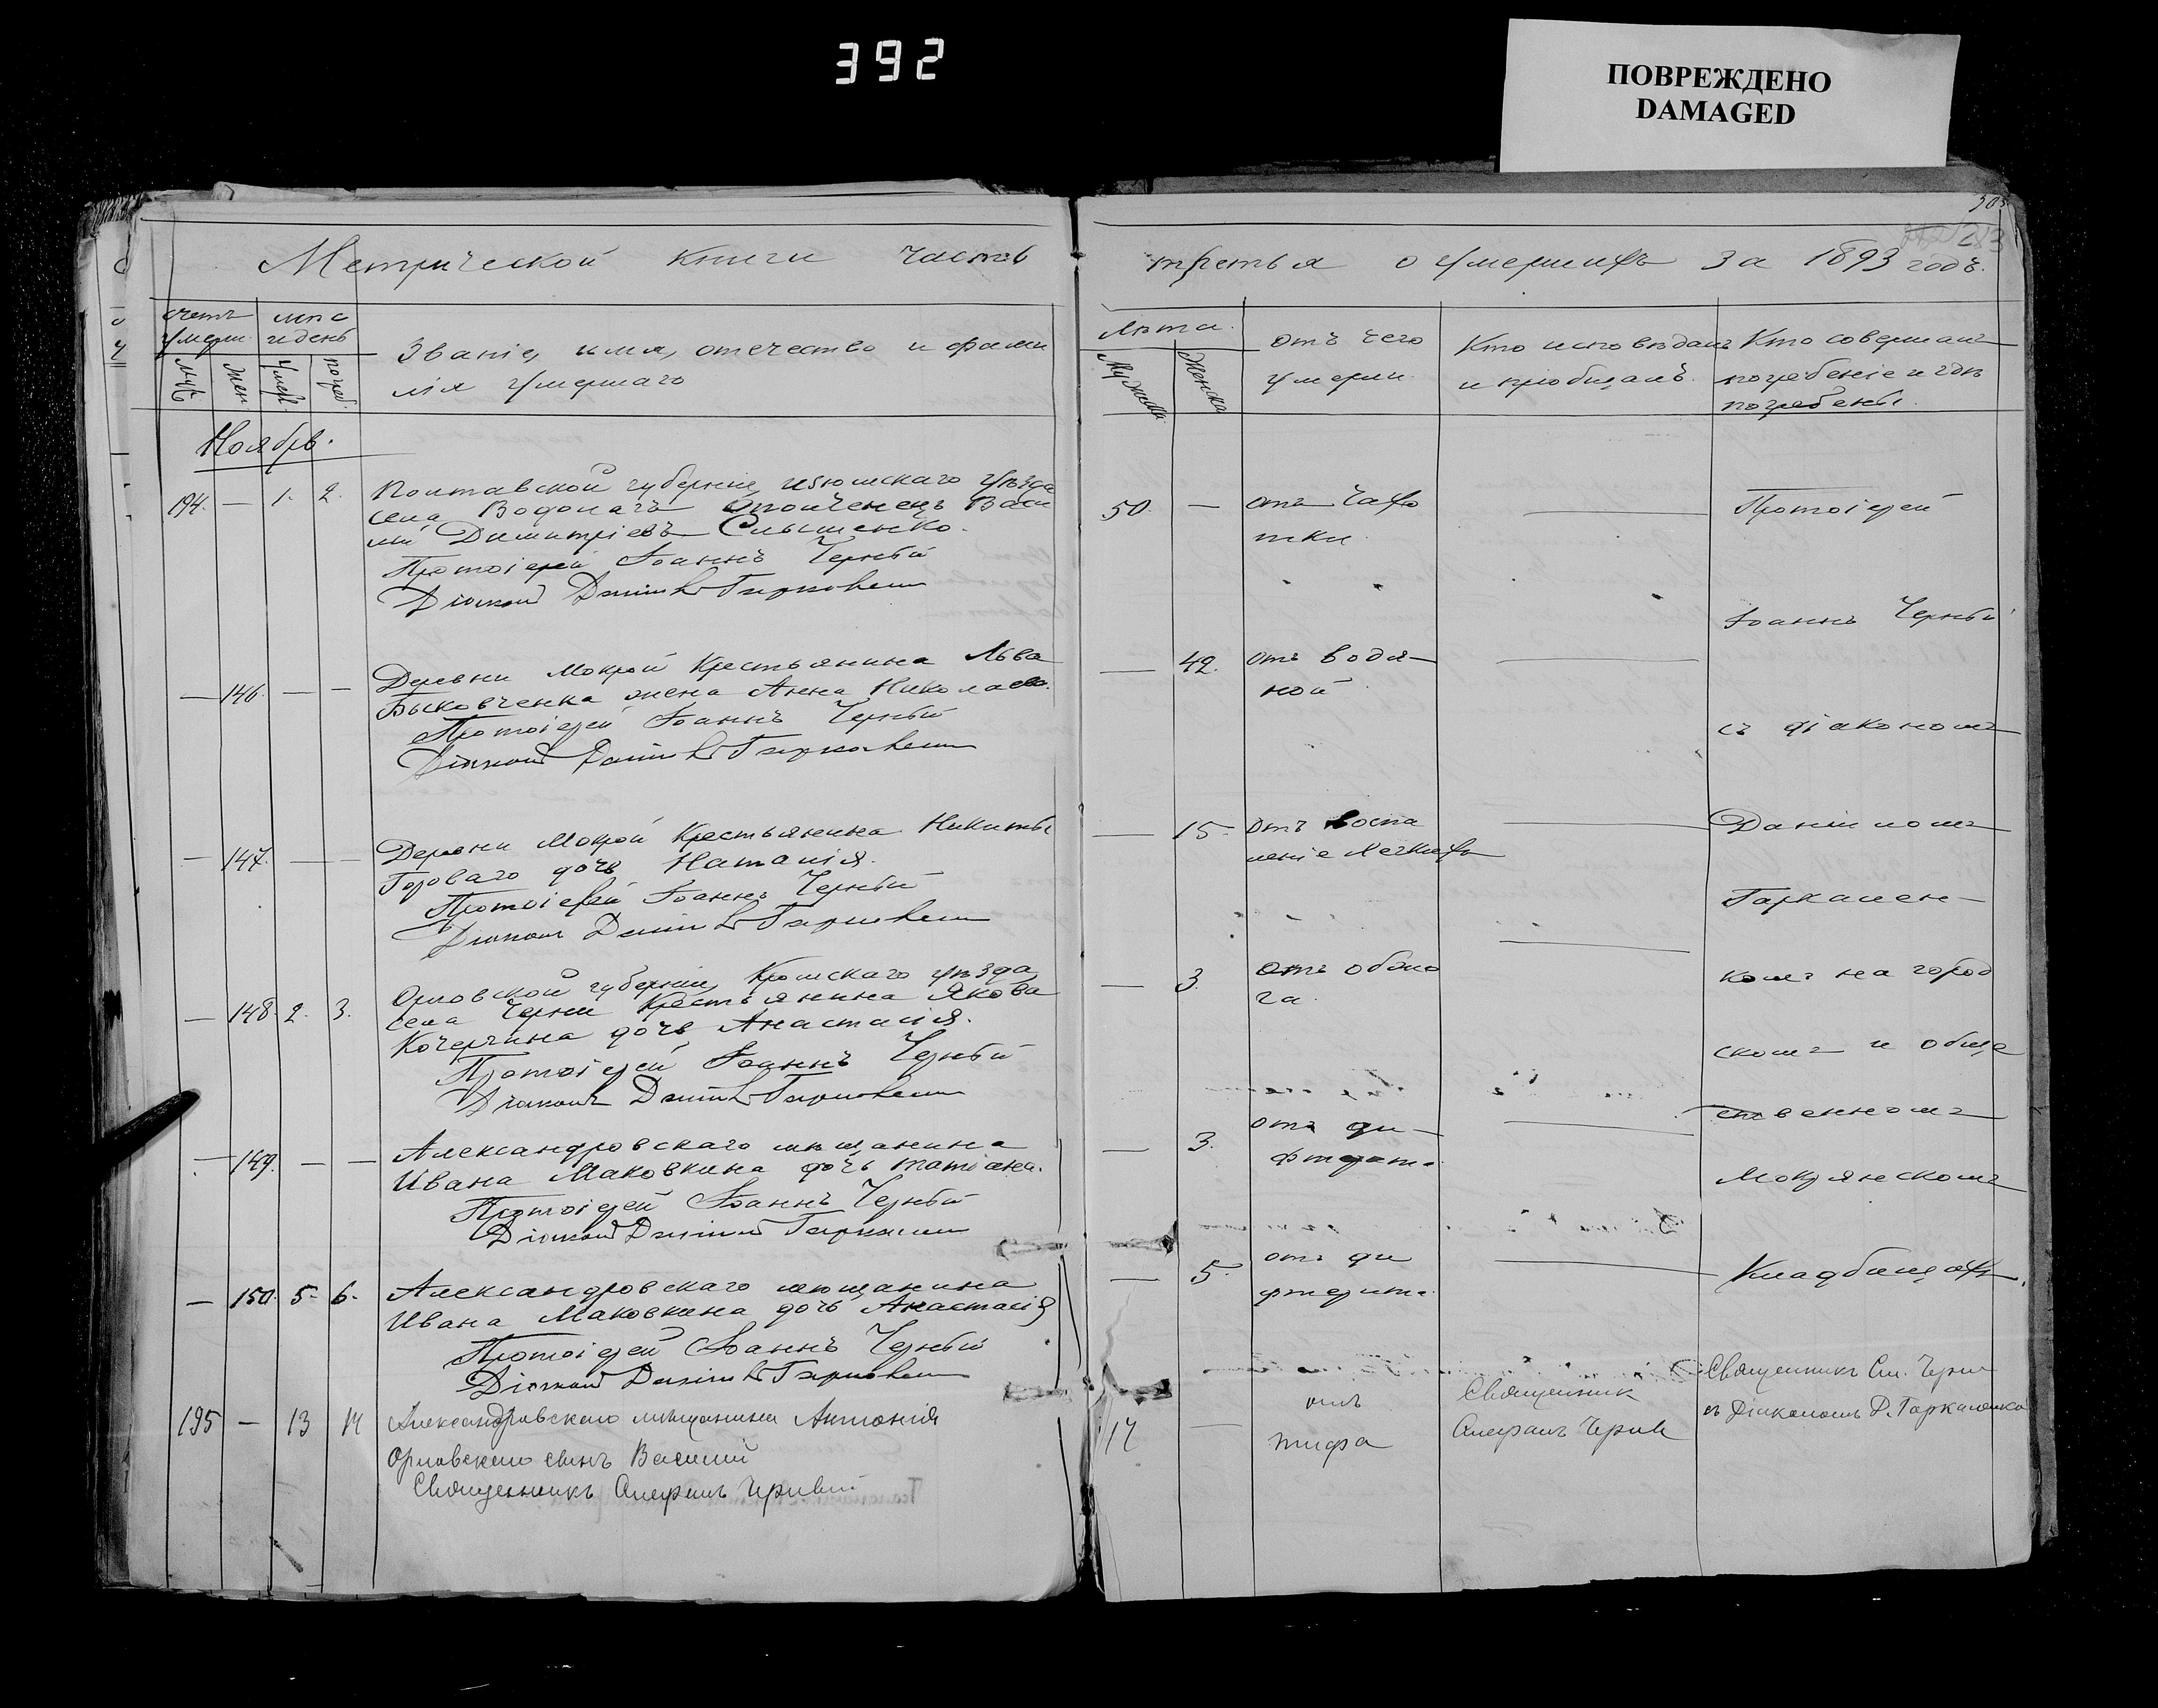 392
ПОВРЕЖДЕНО
DAMAGED
Метрической книги часть
третья о умершихъ за 1893 годъ.
счетъ умерш.
муж. жен.
мѣс. и день
умер. погреб.
Званіе, имя, отечество и фами
лія умершаго
Лѣта.
Мужска Женска
отъ чего
умерли
Кто исповѣдалъ
и пріобщалъ.
Кто совершалъ
погребеніе и гдѣ
погребены.
Ноябрь.
194. — 1. 2.
Полтавской губерніи уѣзда
села Водолагъ Ополченецъ Васи
лій Димитріевъ Слышенко.
Протоіерей Іоаннъ Черный
Діаконъ Даніилъ
50. — отъ Чахо
тки.
— 146. — —
Деревни Мокрой Крестьянина Льва
Быковченка жена Анна Николаева.
Протоіерей Іоаннъ Черный
Діаконъ Даніилъ
— 42. отъ водя-
ной
— 147. — —
Деревни Мокрой Крестьянина Никиты
Гороваго дочь Наталія.
Протоіерей Іоаннъ Черный
Діаконъ Даніилъ
— 15. отъ воспа
леніе Легкихъ
— 148. 2. 3.
Орловской губерніи, Кромскаго уѣзда,
села Черни Крестьянина Якова
Кочергина дочь Анастасія.
Протоіерей Іоаннъ Черный
Діаконъ Даніилъ
— 3. отъ обжо
га.
— 149. — —
Александровскаго мѣщанина
Ивана Маковкина дочь Татіана.
Протоіерей Іоаннъ Черный
Діаконъ Даніилъ
— 3. отъ ди-
фтерита.
— 150. 5. 6.
Александровскаго мѣщанина
Ивана Маковкина дочь Анастасія
Протоіерей Іоаннъ Черный
Діаконъ Даніилъ
— 5. отъ ди
фтерита.
Протоіерей
Іоаннъ Черный
съ діакономъ
Даніиломъ
Гаркален-
комъ на город
скомъ и обще
ственномъ
Мокрянскомъ
Кладбищахъ.
195 — 13 14
Александровскаго мѣщанина Антонія
Орловскаго сынъ Василій
Священникъ
17 — отъ
тифа
Священникъ
Священникъ
съ Діакономъ Д. Гаркаленко